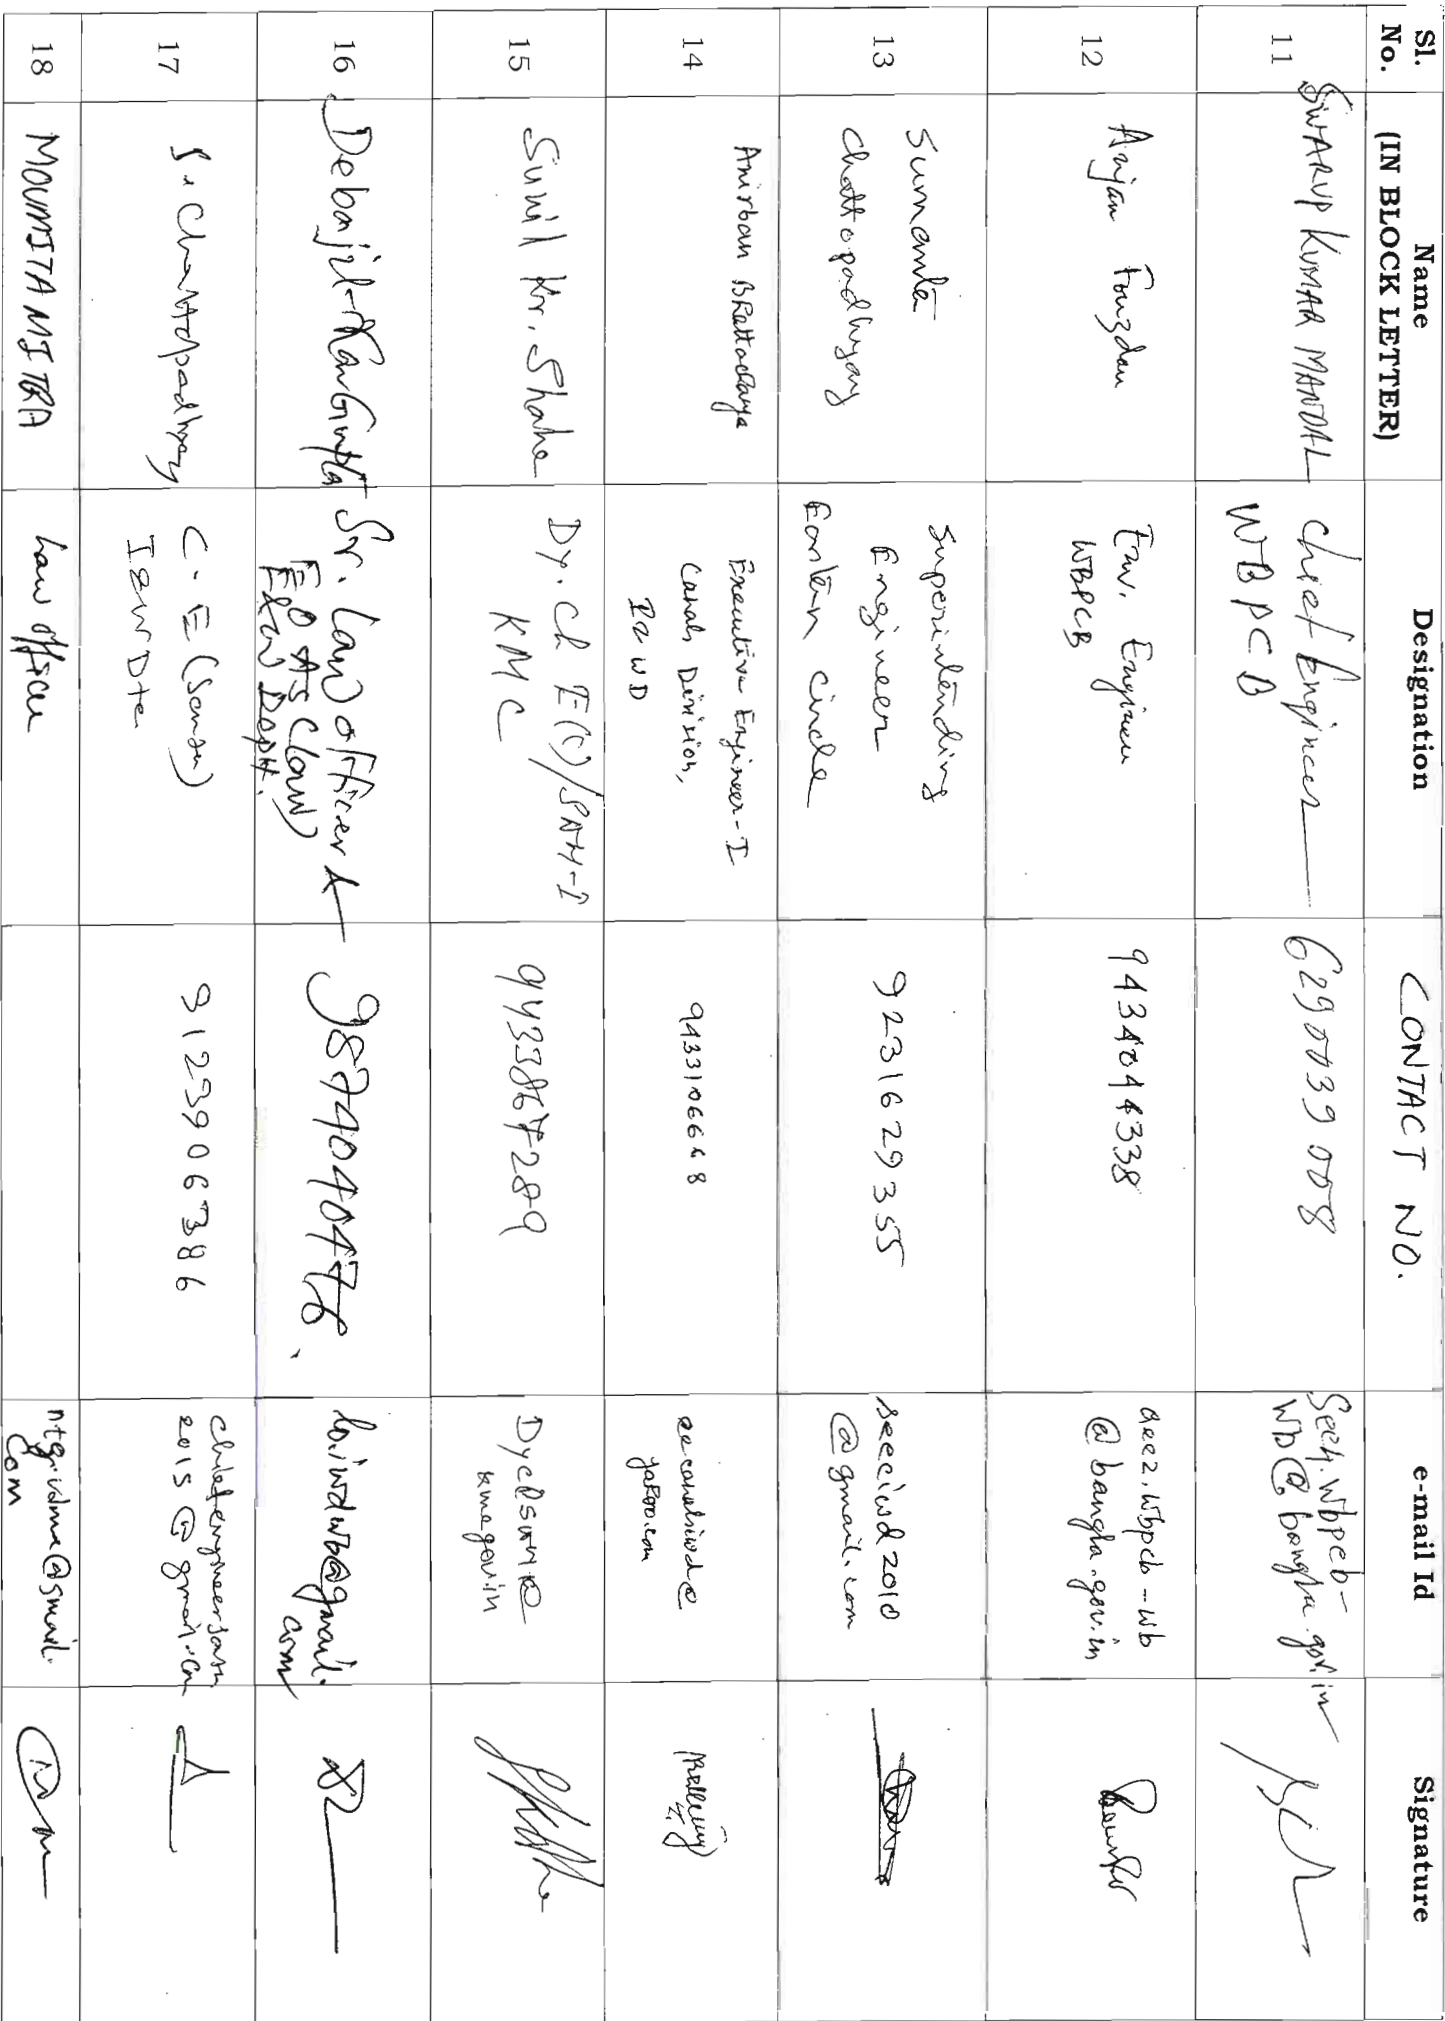 Sl. No.
Name (IN BLOCK LETTER)
Designation
CONTACT NO.
e-mail Id
Signature
11
SWARUP KUMAR MANDAL
Chief Engineer
WBPCB
6290039008
See4.wbpcb-
wb@bangla.gov.in
12
Anjan Fouzdar
Env. Engineer
WBPCB
9434044338
aee2.wbpcb-wb
@bangla.gov.in
13
Sumanta
Chattopadhyay
Superintending
Engineer
Eastern Circle
9231629355
seeciwd2010
@gmail.com
14
Anirban Bhattacharya
Executive Engineer-I
Canals Division,
I&WD
9433106668
ee canalsiwd@
yahoo.com
15
Sunil Kr. Shaha
Dy. Ch E(C)/
KMC
9433867289
16
Debajit
Sr. Law Officer &
EO AS (Law)
I&W Deptt.
9874040476.
lo.iwdwb@gmail.
com
17
S. Chattopadhyay
C.E (
I&W Dte
9123906386
2015@gmail.com
18
MOUMITA MITRA
Law Officer
@gmail.
com